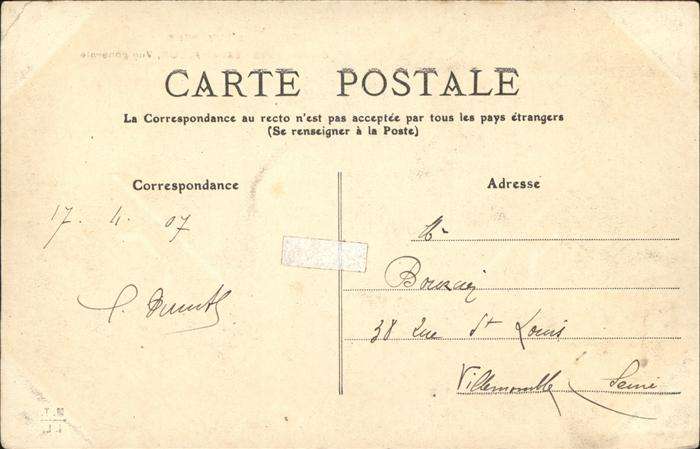 CARTE POSTALE
La Correspondance au recto n'est pas acceptée par tous les pays étrangers
(Se renseigner à la Poste)
Correspondance
17. 4. 07
Adresse
Mr
38 Rue St Louis
Villemomble Seine